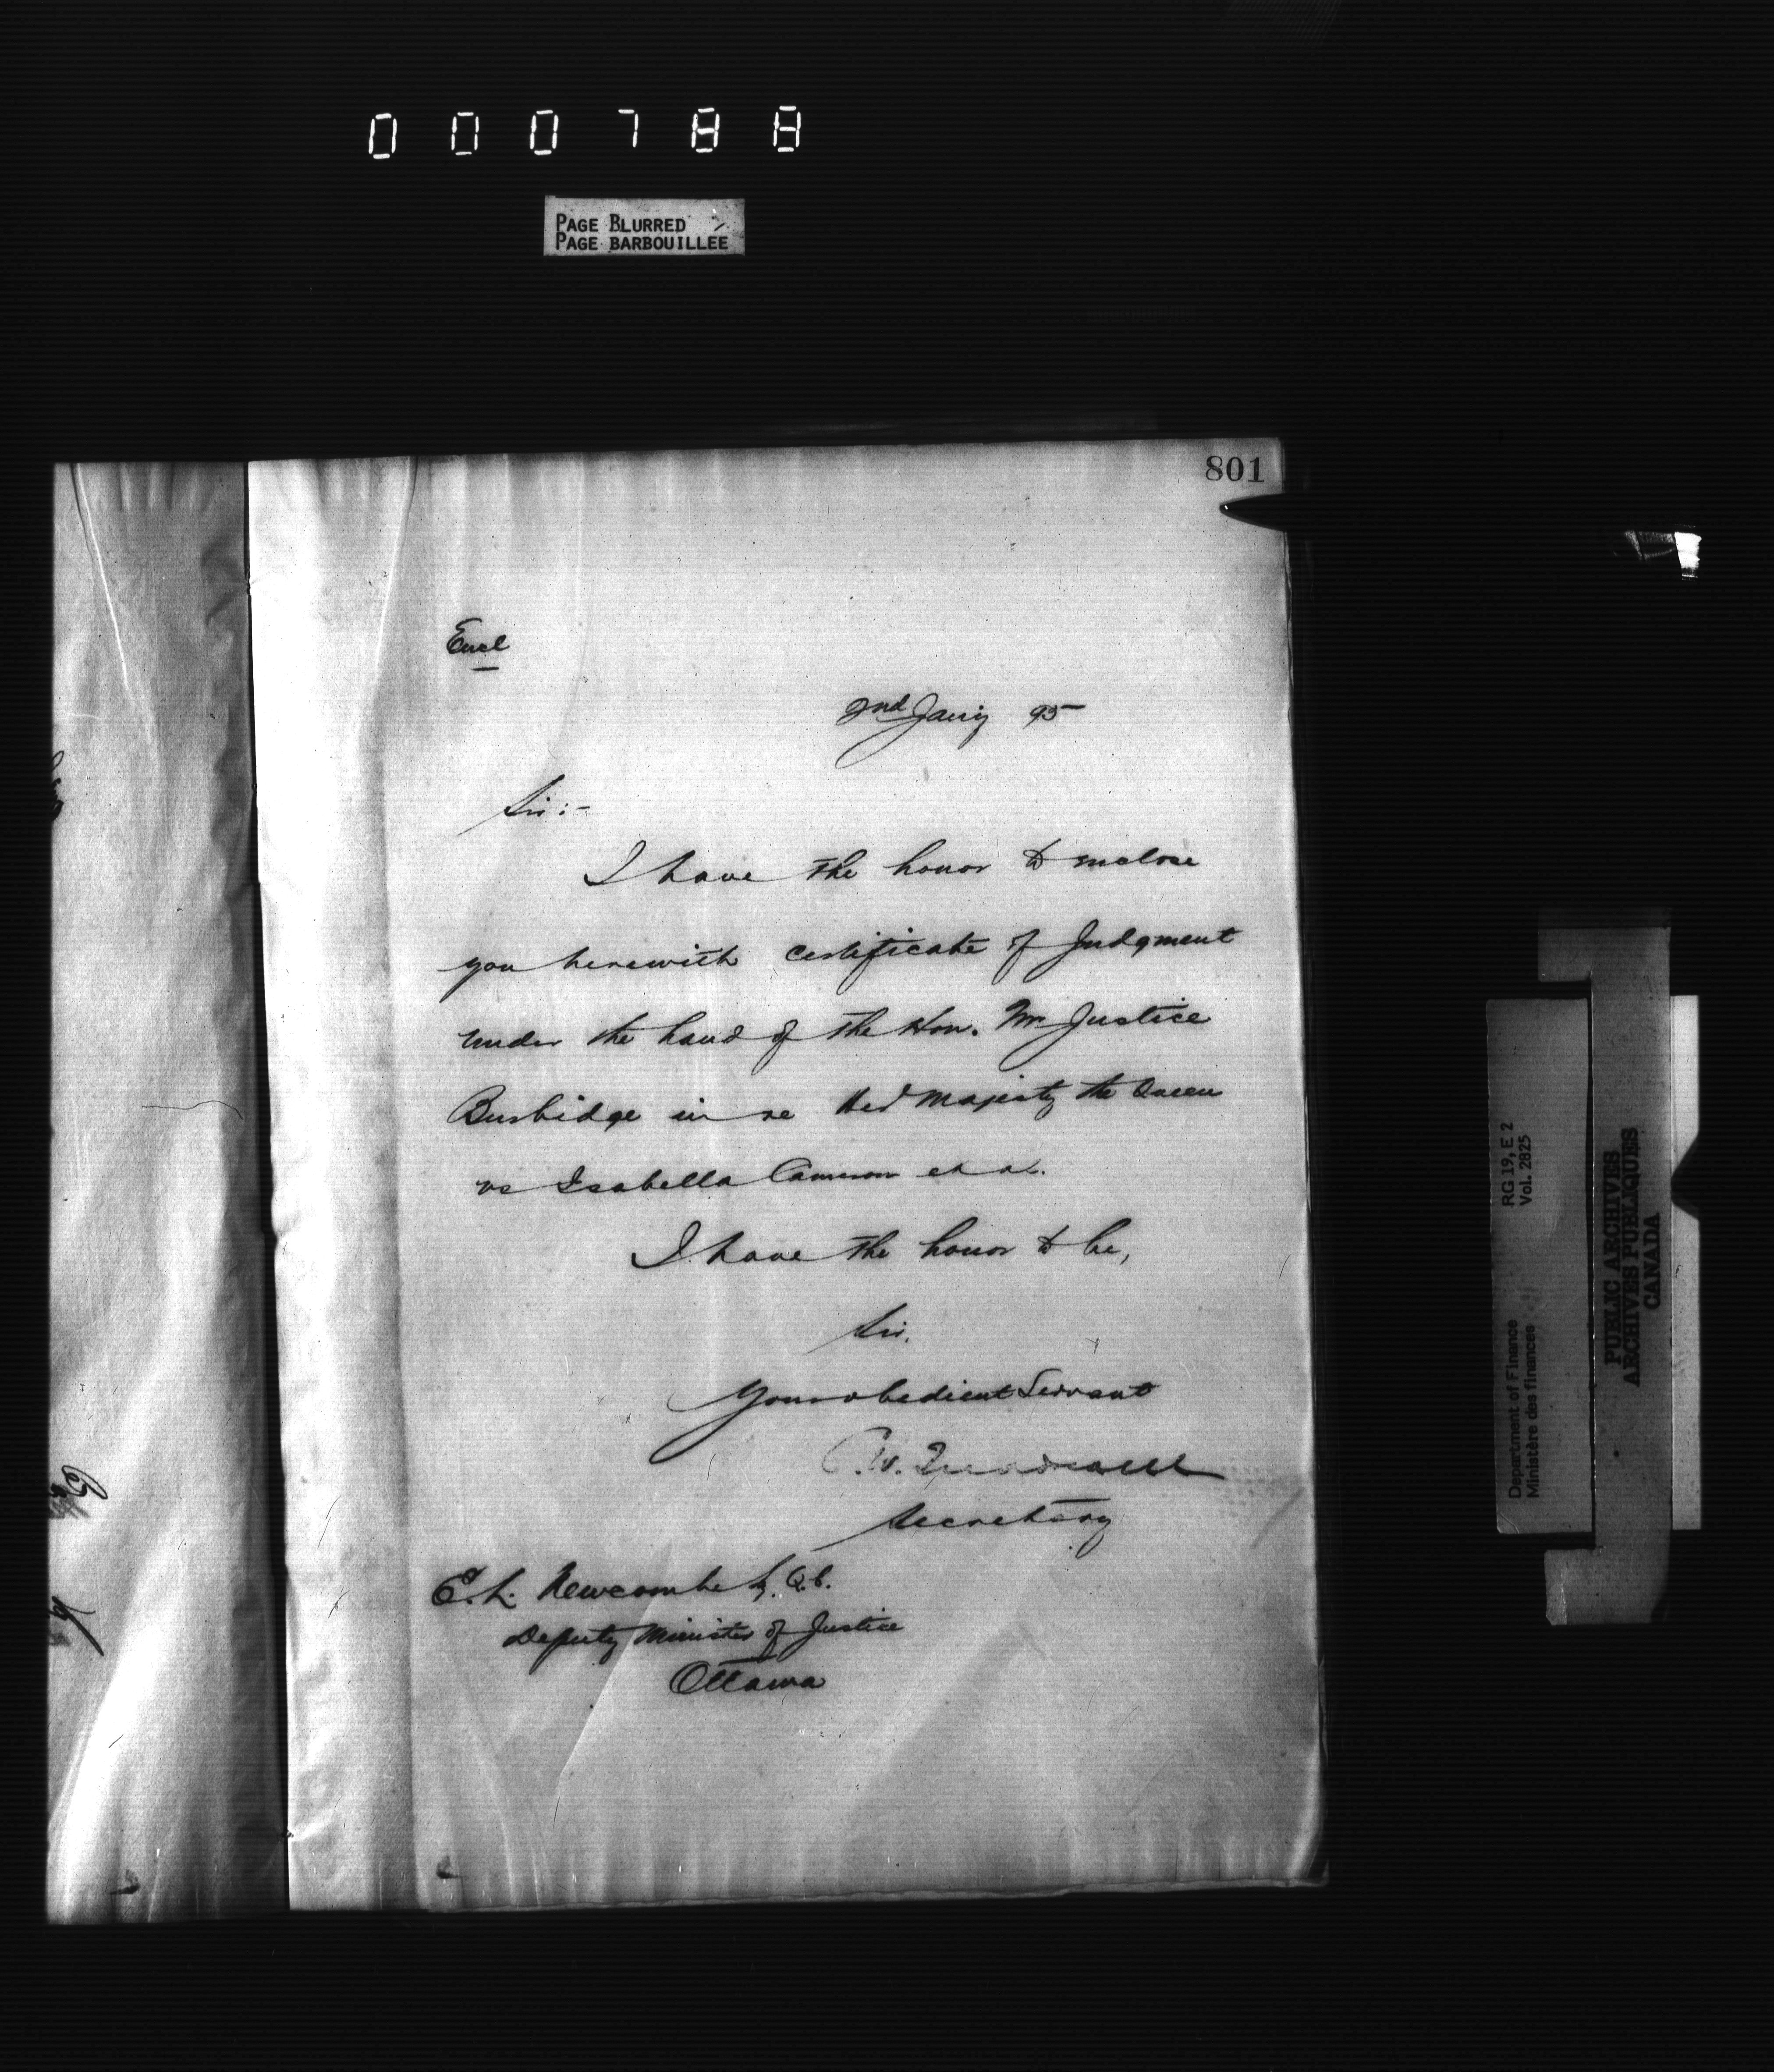 000788
PAGE BLURRED
PAGE BARBOUILLÉE
801
Encl
2nd Jany 95
Sir:-
I have the honor to enclose
you herewith certificate of Judgment
under the hand of the Hon. Mr Justice
Burbidge in re Her Majesty the Queen
vs Isabella Cameron et al.
I have the honor to be,
Sir,
Your obedient Servant
Secretary
E. L. Newcombe Q.C.
Deputy Minister of Justice
Ottawa
RG 19, E 2
Vol. 2825
Department of Finance
Ministère des finances
PUBLIC ARCHIVES
ARCHIVES PUBLIQUES
CANADA